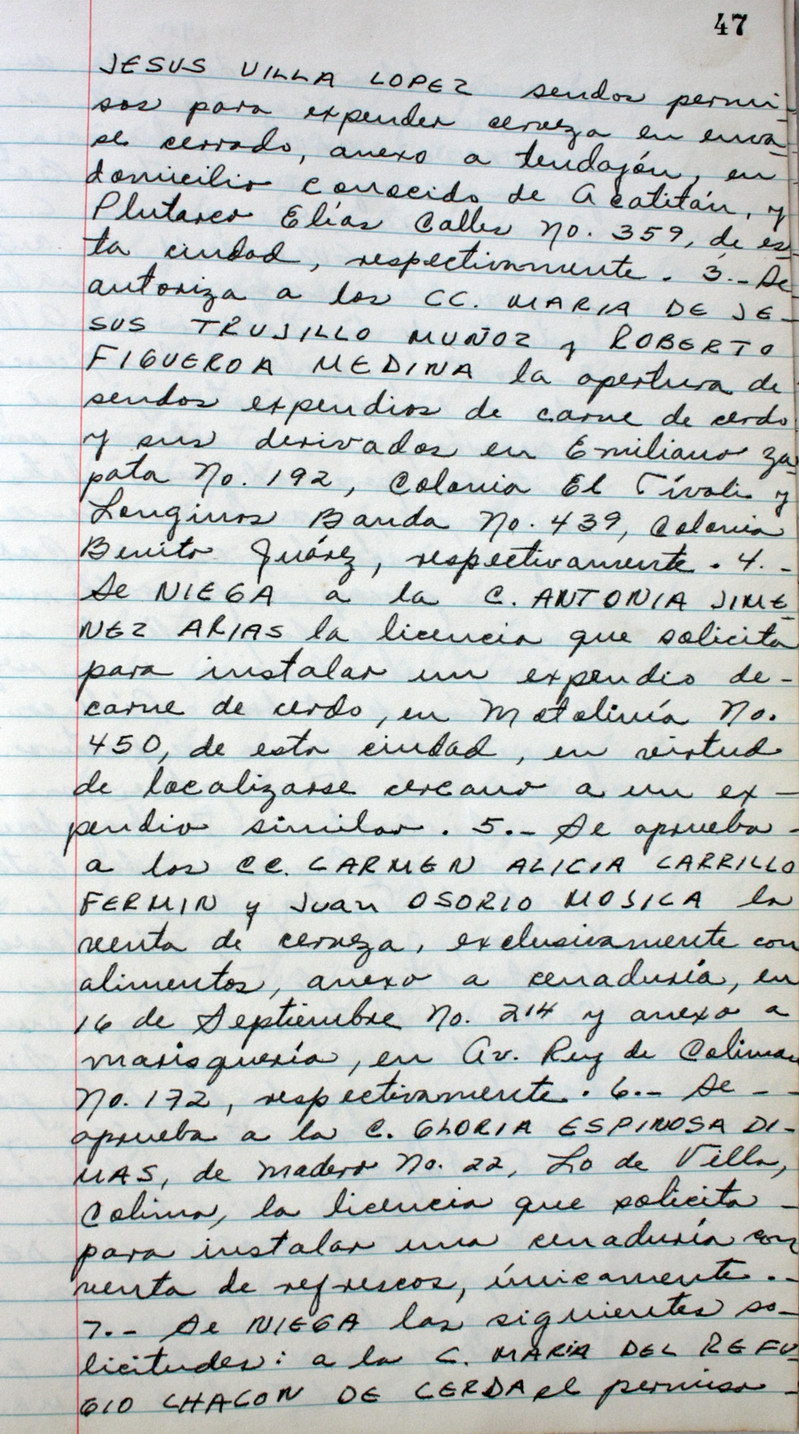 47
JESUS VILLA LOPEZ sendos permi-
sos para expender cerveza en enva-
se cerrado, anexo a tendajón, en
domicilio conocido de Acatitán, y
Plutarco Elías Calles No. 359, de es-
ta ciudad, respectivamente. 3.- Se
autoriza a los CC. MARIA DE JE-
SUS TRUJILLO MUÑOZ y ROBERTO
FIGUEROA MEDINA la apertura de
sendos expendios de carne de cerdo
y sus derivados en Emiliano Za
pata No. 192, Colonia El Tívoli y
Longinos Banda No. 439, Colonia
Benito Juárez, respectivamente. 4.-
Se NIEGA a la C. ANTONIA JIME
NEZ ARIAS la licencia que solicita
para instalar un expendio de-
carne de cerdo, en Motolinía No.
450, de esta ciudad, en virtud
de localizarse cercano a un ex-
pendio similar. 5.- Se aprueba-
a los CC. CARMEN ALICIA CARRILLO
FERMIN y Juan OSORIO MOJICA la
venta de cerveza, exclusivamente con
alimentos, anexo a cenaduría, en
16 de Septiembre No. 214 y anexo a
marisquería, en Av. Rey de Coliman
No. 172, respectivamente. 6.- Se--
aprueba a la C. GLORIA ESPINOSA DI-
MAS, de Madero No. 22, Lo de Villa,
Colima, la licencia que solicita-
para instalar una cenaduría con
venta de refrescos, únicamente.-
7.- Se NIEGA las siguientes so-
licitudes: a la C. MARIA DEL REFU
GIO CHACON DE CERDA el permiso-